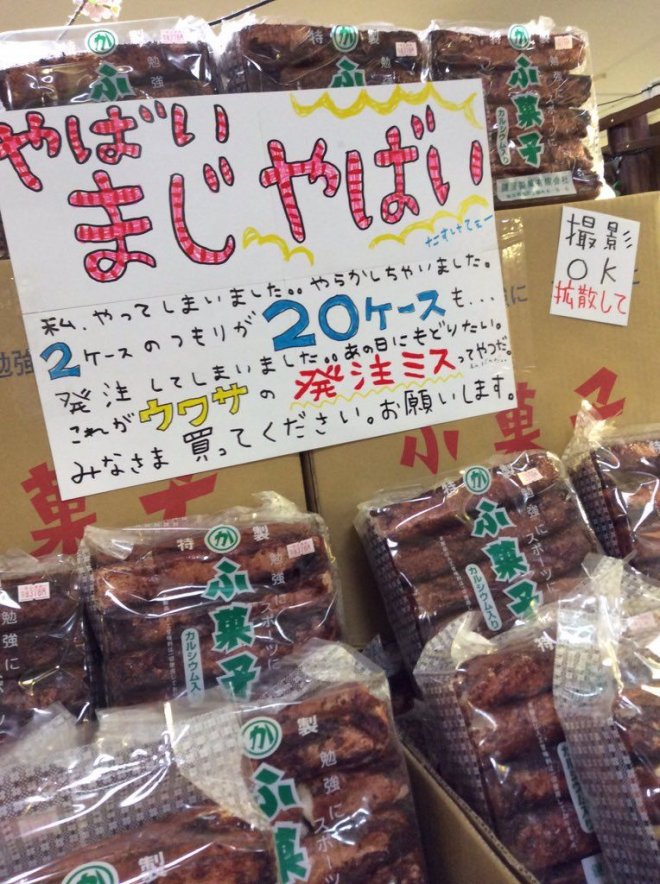 特 か 製
勉強
ふ菓子
特 か 製
ふ
勉強
特 か 製
ふ菓子
勉強
カルシウム入り
やばい
まじ やばい
たすけてェー
私、やってしまいました。。やらかしちゃいました。
2ケースのつもりが20ケースも...
発注してしまいました。。あの日にもどりたい。
これがウワサの発注ミスってやつだ。
みなさま買ってください。お願いします。
撮影
OK
拡散して
勉強
に
菓子
ふ菓子
勉強に
特 か 製
ふ菓子
勉強にスポーツに
カルシウム入り
特 か 製
ふ菓子
勉強にスポーツに
カルシウム入り
か 製
ふ菓子
勉強にスポーツ
か 製
製
勉強に